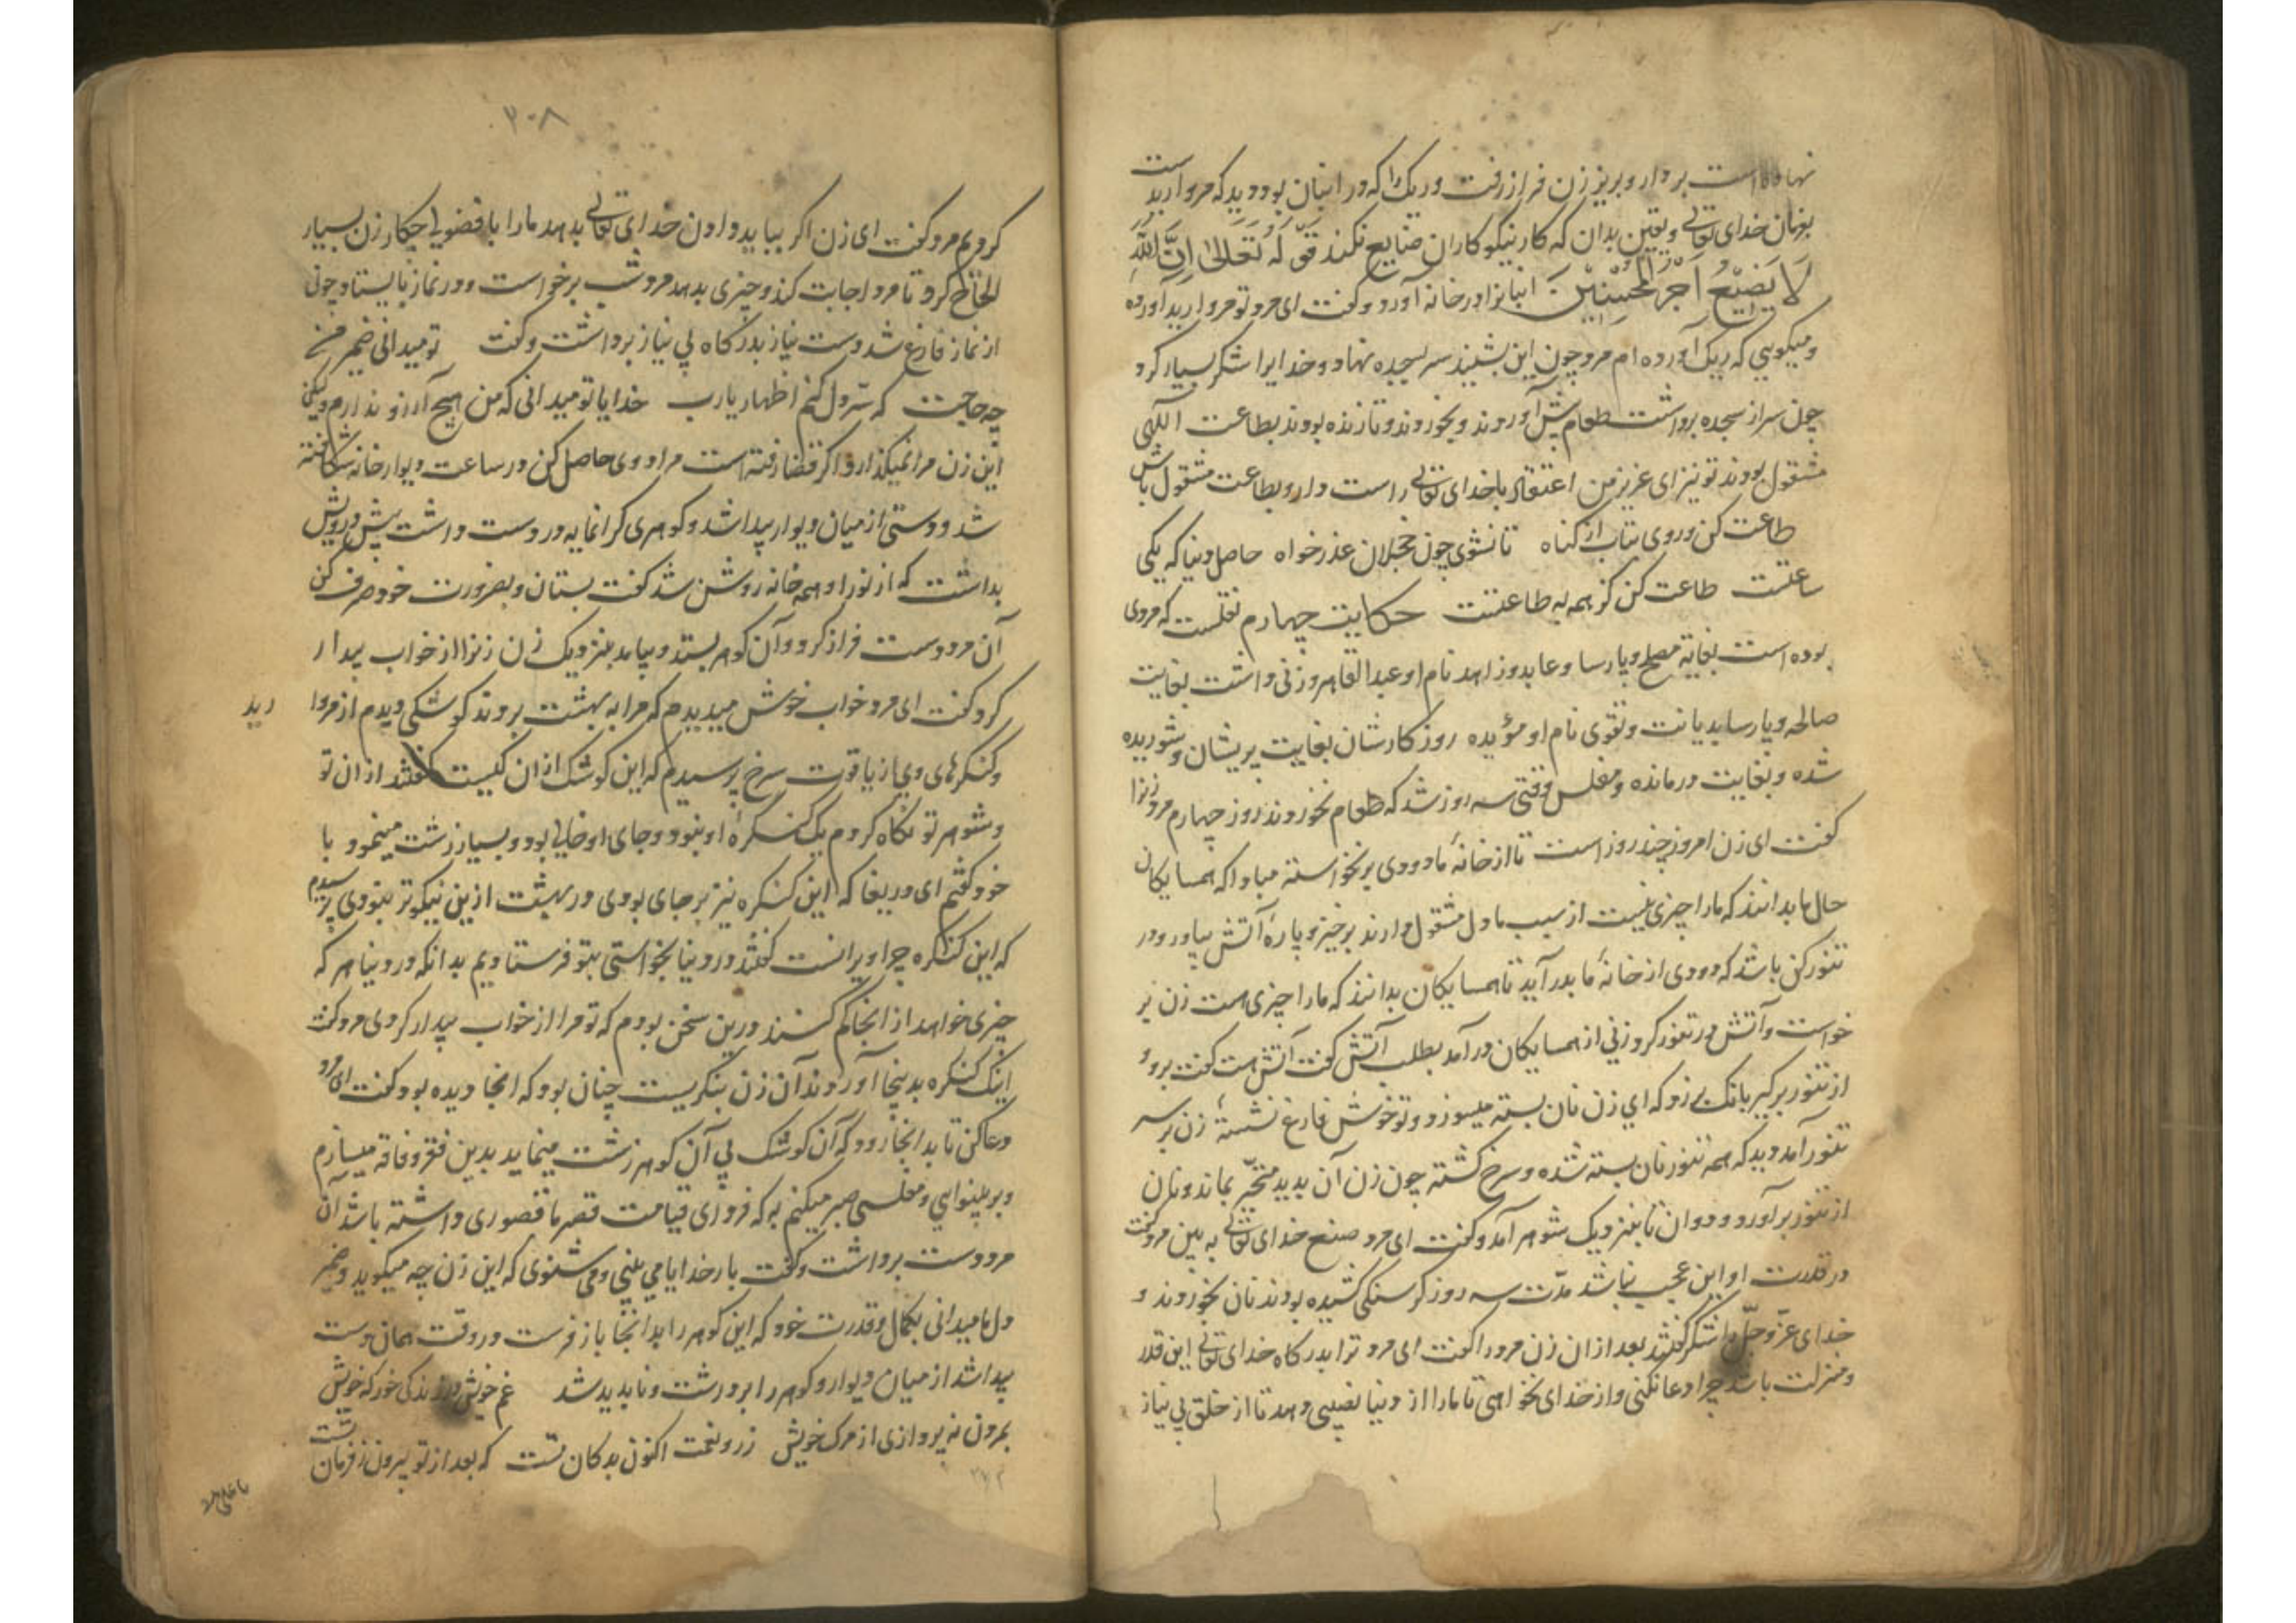 نهاده است بردار و بریز زن فراز رفت و ریک را که در انبان بود دید که مروارید است
بفرمان خدای تعالی و یقین بدان که کار نیکو کاران ضایع نکند قوله تعالی اِنَّ اللّٰهَ
لَا یُضِیْعُ اَجْرَ الْمُحْسِنِیْنَ انبانرا در خانه آورد و کفت ای مرد تو مروارید آورده
و میکویی که ریک آورده ام مرد چون این بشنید سر بسجده نهاد و خدایرا شکر بسیار کرد
چون سر از سجده برداشت طعام پیش آوردند و بخوردند و تا زنده بودند بطاعت الهی
مشغول بودند تو نیز ای عزیز من اعتقاد با خدای تعالی راست دار و بطاعت مشغول باش
طاعت کن و روی بتاب از کناه تا نشوی چون خجلان عذر خواه حاصل دنیا که یکی
ساعتست طاعت کن کز همه به طاعتست حکایت چهارم نقلست که مردی
بوده است بغایة مصلح و پارسا و عابد و زاهد نام او عبد القاهر و زنی داشت بغایت
صالحه و پارسا بدیانت و تقوی نام او مؤیده روزکارشان بغایت پریشان و شوریده
شده و بغایت درمانده و مفلس وقتی سه روز شد که طعام نخوردند روز چهارم مرد زنرا
کفت ای زن امروز چند روز است تا از خانهٔ ما دودی برنخواسته مبادا که همسایکان
حال ما بدانند که ما را چیزی نیست از سبب ما دل مشغول دارند برخیز و پارهٔ آتش بیاور و در
تنور کن باشد که دودی از خانهٔ ما بدر آید تا همسایکان بدانند که ما را چیزی هست زن بر
خواست و آتش در تنور کرد زنی از همسایکان در آمد بطلب آتش کفت آتش هست کفت برو
از تنور برکیر بانک بی زد که ای زن نان بسته میسوزد و تو خوش فارغ نشستهٔ زن بر سر
تنور آمد دید که همه تنور نان بسته شده و سرخ کشته چون زن آن بدید متحیّر بماند و نان
از تنور برآورد و دوان تا بنزدیک شوهر آمد و کفت ای مرد صنع خدای تعالی به بین مرد کفت
در قدرت او این عجیب نباشد مدّت سه روز کرسنکی کشیده بودند نان بخوردند و
خدای عزّ و جلّ را شکر کفتند بعد از ان زن مرد را کفت ای مرد ترا بدرکاه خدای تعالی این قدر
و منزلت باشد چرا دعا نکنی و از خدای نخواهی تا ما را از دنیا نصیبی دهد تا از خلق بی نیاز
۲۰۸
کردیم مرد کفت ای زن اکر بباید دادن خدای تعالی بدهد ما را با فضولی چکار زن بسیار
الحاح کرد تا مرد اجابت کند و چیزی بدهد مرد شب برخواست و در نماز بایستاد چون
از نماز فارغ شد دست نیاز بدرکاه بی نیاز برداشت و کفت تو میدانی ضمیر من
چه حاجت که سرّ دل کنم اظهار یا رب خدایا تو میدانی که من هیچ آرزو ندارم ولیکن
این زن مرا نمیکذارد اکر قضا رفته است مراد وی حاصل کن در ساعت دیوار خانه شکافته
شد و دستی از میان دیوار پیدا شد و کوهری کرانمایه در دست داشت پیش درویش
بداشت که از نور او همه خانه روشن شد کفت بستان و بضرورت خود صرف کن
آن مرد دست فراز کرد و آن کوهر بستد و بیامد بنزدیک زن زنرا از خواب بیدار
کرد کفت ای مرد خواب خوش میدیدم که مرا به بهشت بردند کوشکی دیدم از مروا
رید
و کنکرهای وی از یاقوت سرخ پرسیدم که این کوشک از ان کیست کفتند از ان تو
و شوهر تو نکاه کردم یک کنکرهٔ او نبود و جای او خالی بود و بسیار زشت مینمود با
خود کفتم ای دریغا که این کنکره نیز بر جای بودی در بهشت ازین نیکوتر نبودی پرسیدم
که این کنکره چرا ویرانست کفتند در دنیا بخواستی بتو فرستادیم بدانکه در دنیا هر که
چیزی خواهد از انجا کم کنند درین سخن بودم که تو مرا از خواب بیدار کردی مرد کفت
اینک کنکره بدینجا آوردند آن زن بنکریست چنان بود که انجا دیده بود کفت ای مرد
دعا کن تا بدانجا رود که آن کوشک بی آن کوهر زشت مینماید بدین فقر و فاقه میسازم
و بر بینوایی و مفلسی صبر میکنم به که فردای قیامت قصر ما قصوری داشته باشد آن
مرد دست برداشت و کفت بار خدایا می بینی و می شنوی که این زن چه میکوید و ضمیر
دل ما میدانی بکمال و قدرت خود که این کوهر را بدانجا باز فرست در وقت همان دست
پیدا شد از میان دیوار و کوهر را بردرشت و ناپدید شد غم خویش در زندکی خور که خویش
بمرده نپردازی از مرک خویش زر و نعمت اکنون بده کان تست که بعد از تو بیرون ز فرمان تست